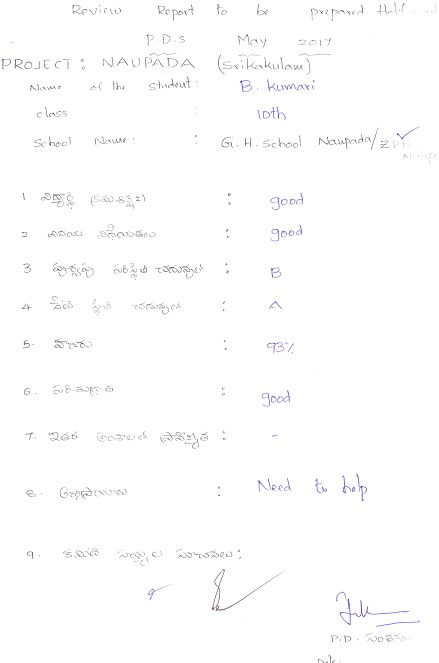 Review Report to be prepared Half
P.D.S May 2017
PROJECT: NAUPADA (Srikakulam)
Name of the student: B. Kumari
class : 10th
School Name: : G. H. School Naupada/ZPH
1 విద్యార్థి క్రమశిక్షణ : good
2 వినయ విధేయతలు : good
3 పూర్వపు పరిస్థితి చదువులో : B
4 నేటి స్థితి చదువులో : A
5. హాజరు : 93%
6. పరిశుభ్రత : good
7. ఇతర అంశాలలో ప్రావీణ్యత : -
8. అభిప్రాయాలు : Need to help
9. కమిటీ సభ్యుల సూచనలు:
P.D. సంతకం.
Date.